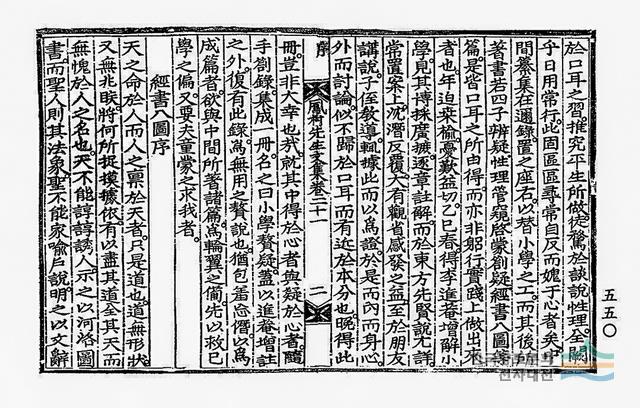 於口耳之習推究平生所做徒騖於談說性理全闕
乎日用常行此固區區尋常自反而媿于心者矣中
間纂集在邇錄置之座右以替小學之工而其後所
著書若四子辨疑性理管窺啓蒙劄疑經書八圖等
篇是皆口耳之所由得而亦非躬行實踐上做出來
者也年迫桑楡憂歎益切乙巳春得李進菴增解小
學見其博採廣摭逐章註解而於東方先賢說尤詳
常置案上沈潛反覆大有觀省感發之益至於朋友
講說子侄敎導輒據此而以爲證於是而內而身心
外而討論似不歸於口耳而有近於本分也晩得此
序 鳳村先生文集卷二十一 二
冊豈非大幸也哉就其中得於心者與疑於心者隨
手劄錄集成一冊名之曰小學贅疑蓋以進菴增註
之外復有此錄爲無用之贅說也猶包羞忘僭以爲
成篇者欲與中間所著諸篇爲輪翼之備先以救已
學之偏又要夫童蒙之求我者
經書八圖序
天之命於人而人之稟於天者只是道也道無形狀
又無兆眹將何所捉摸據依有以盡其道全其天而
無愧於人之名也天不能諄諄誘人示之以河洛圖
書而聖人則其法象聖不能家喩戶說明之以文辭
五五〇